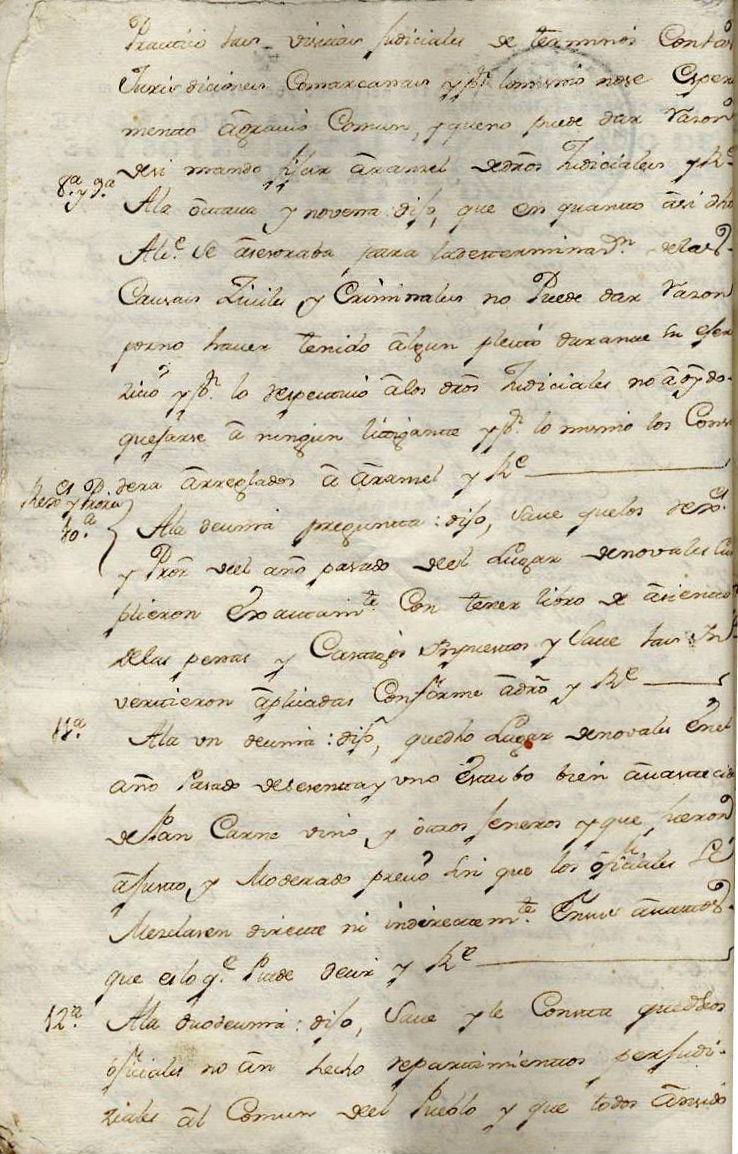 Practicó las visitas judiciales de terminos con las
Jurisdiciones Comarcanas y pr. lo mismo no se esperi
mento agravio Comun, y que no puede dar razon
de si mando fijar aranzel de dros Judiciales y Re
8ª y 9ª Ala octava y novena: dijo, que en quanto a si dho
Alce. se asesoraba para la determinazn. de las
Causas Ziviles y Criminales no Puede dar razon
por no haver tenido algun pleito durante su ejer
zicio y pr. lo respectivo a los dros Judiciales no a oydo
quejarse a ningun litigante y pr. lo mismo los Consi
dera arreglados a aranzel y Re
10ª Ala decima pregunta: dijo, save que los
y Pror del año pasado de el Lugar de novales cum
plieron exactamte. con tener libro de asiento
de las penas y Castigos impuestos y save las in
virtieron aplicadas conforme a dro y Re
11ª Ala un decima: dijo, que dho Lugar de novales en el
año Pasado de sesenta y uno estubo bien avastecido
de Pan Carne vino, y otros jeneros y que fueron
a justo, y Moderado precio sin que los ofiziales se
Mezclasen directe ni indirectamte. en sus avastos
que es lo qe. Puede decir y Re
12ª Ala duodecima: dijo, save y le Consta que dhos
ofiziales no an hecho repartimientos perjudi
ziales al Comun de el Pueblo y que todos an sido